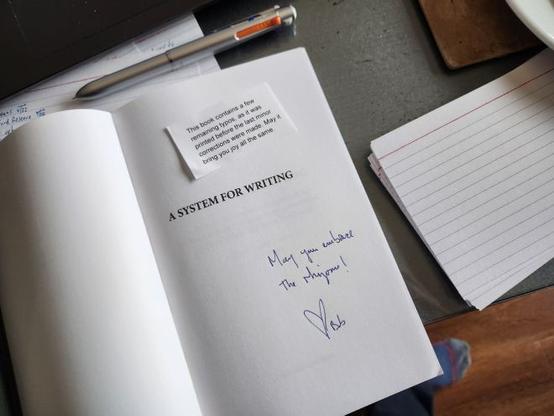 This book contains a few
remaining typos, as it was
printed before the last minor
corrections were made. May it
bring you joy all the same.
A SYSTEM FOR WRITING
May you embrace
the rhizome!
Bob